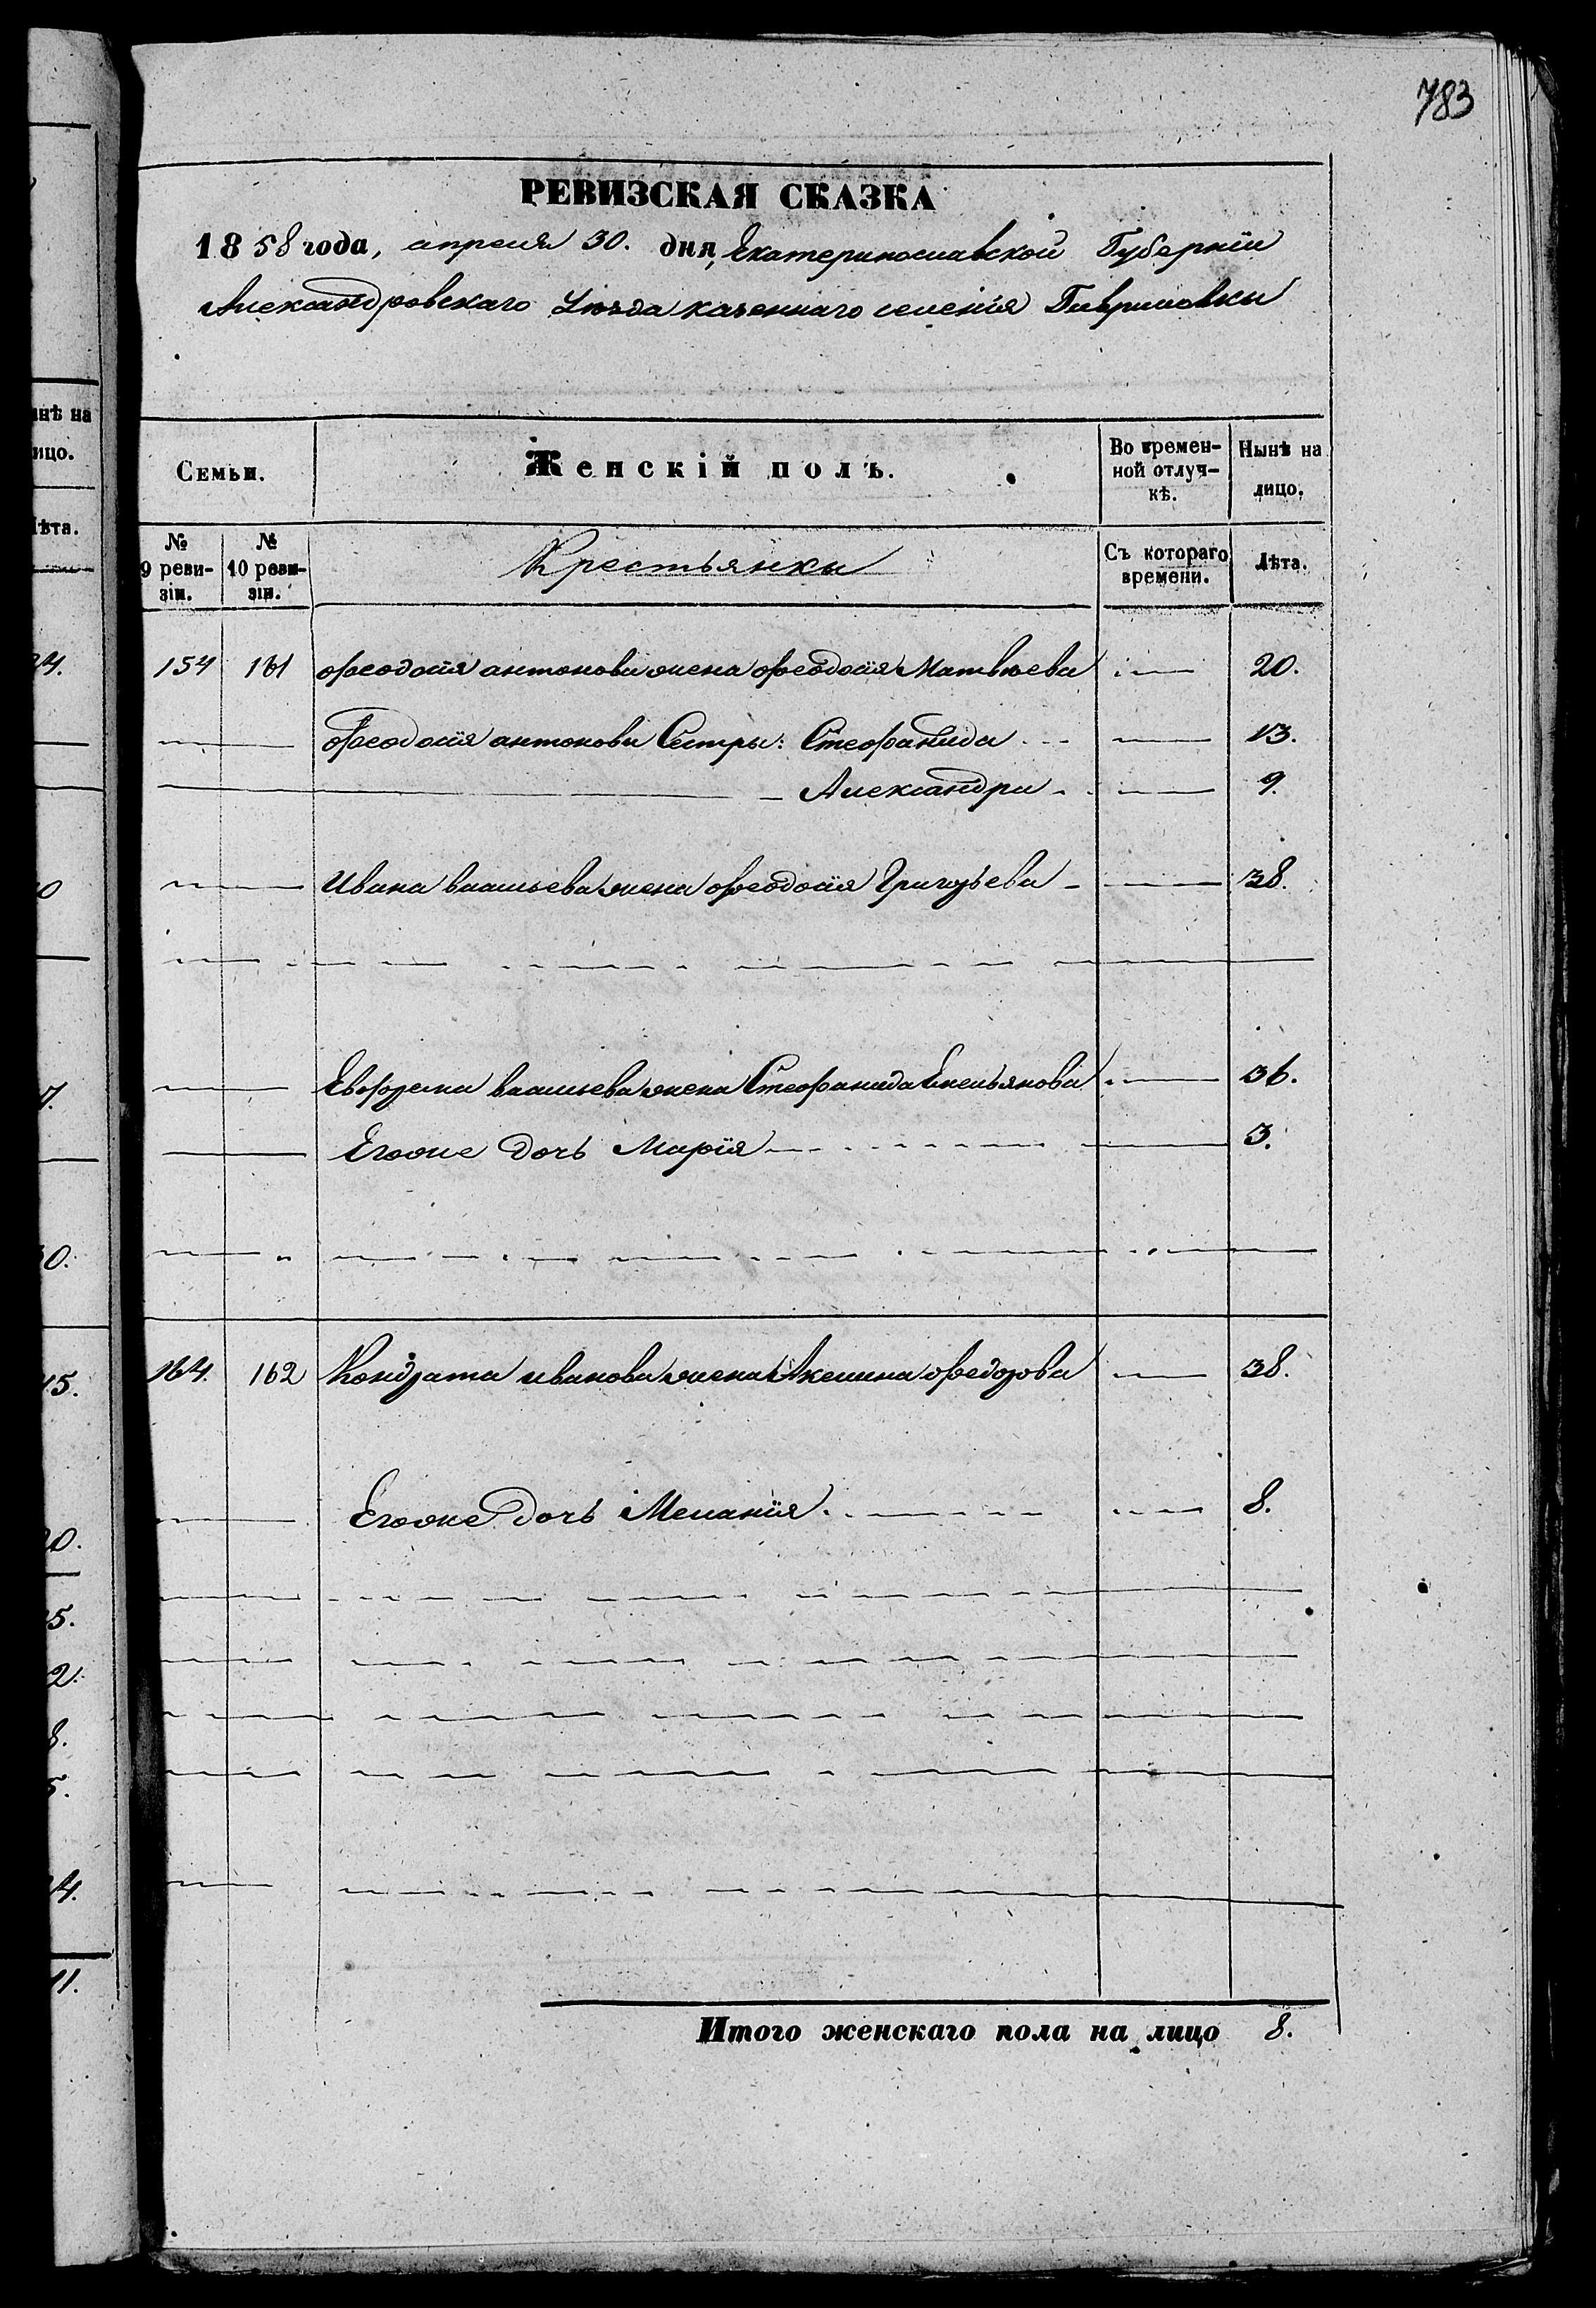 783
РЕВИЗСКАЯ СКАЗКА
1858 года, апреля 30. дня, Екатеринославской Губерніи
Александровскаго Уѣзда казеннаго селенія Гавриловки
Семьи.
Женскій полъ.
Во времен-
ной отлуч-
кѣ.
Нынѣ на
лицо.
№
9 реви-
зіи.
№
10 реви-
зіи.
Крестьянки
Съ котораго
времени.
Лѣта.
154 161 Феодосія антонова жена Феодосія Матвѣева 20.
Феодосія антонова Сестры: Стефанида 13.
Александра 9.
Ивана власьева жена Феодосія Григорьева 38.
Евфрема власьева жена Стефанида Емельянова 36.
Егоже дочь Марія 3.
164. 162 Кондрата иванова жена Аксинья Федорова 38.
Егоже дочь Меланія 8.
Итого женскаго пола на лицо 8.
инѣ на
ицо.
ѣта.
24.
0
7.
0.
15.
20.
5.
2.
8.
5.
4.
11.